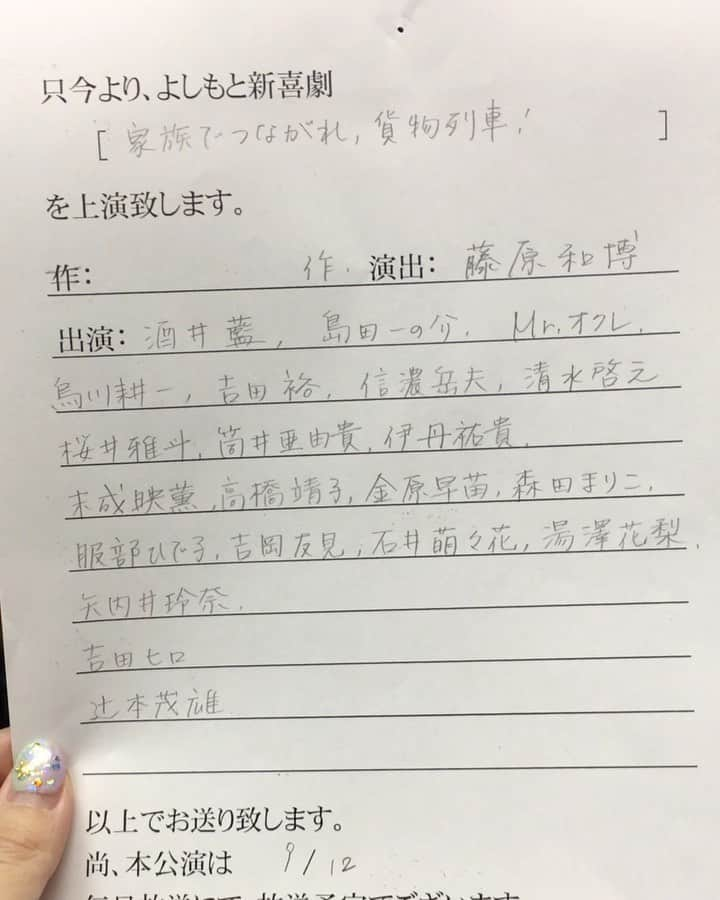 只今より、よしもと新喜劇
[ 家族でつながれ,貨物列車! ]
を上演致します。
作: 作. 演出: 藤原和博
出演: 酒井藍, 島田一の介. Mr.オクレ.
烏川耕一, 吉田裕, 信濃岳夫, 清水啓元
桜井雅斗, 筒井亜由貴, 伊丹祐貴.
末成映薫, 高橋靖子, 金原早苗, 森田まりこ.
服部ひで子, 吉岡友見, 石井萌々花, 湯澤花梨.
矢内井玲奈.
吉田ヒロ
辻本茂雄
以上でお送り致します。
尚、本公演は 9/12